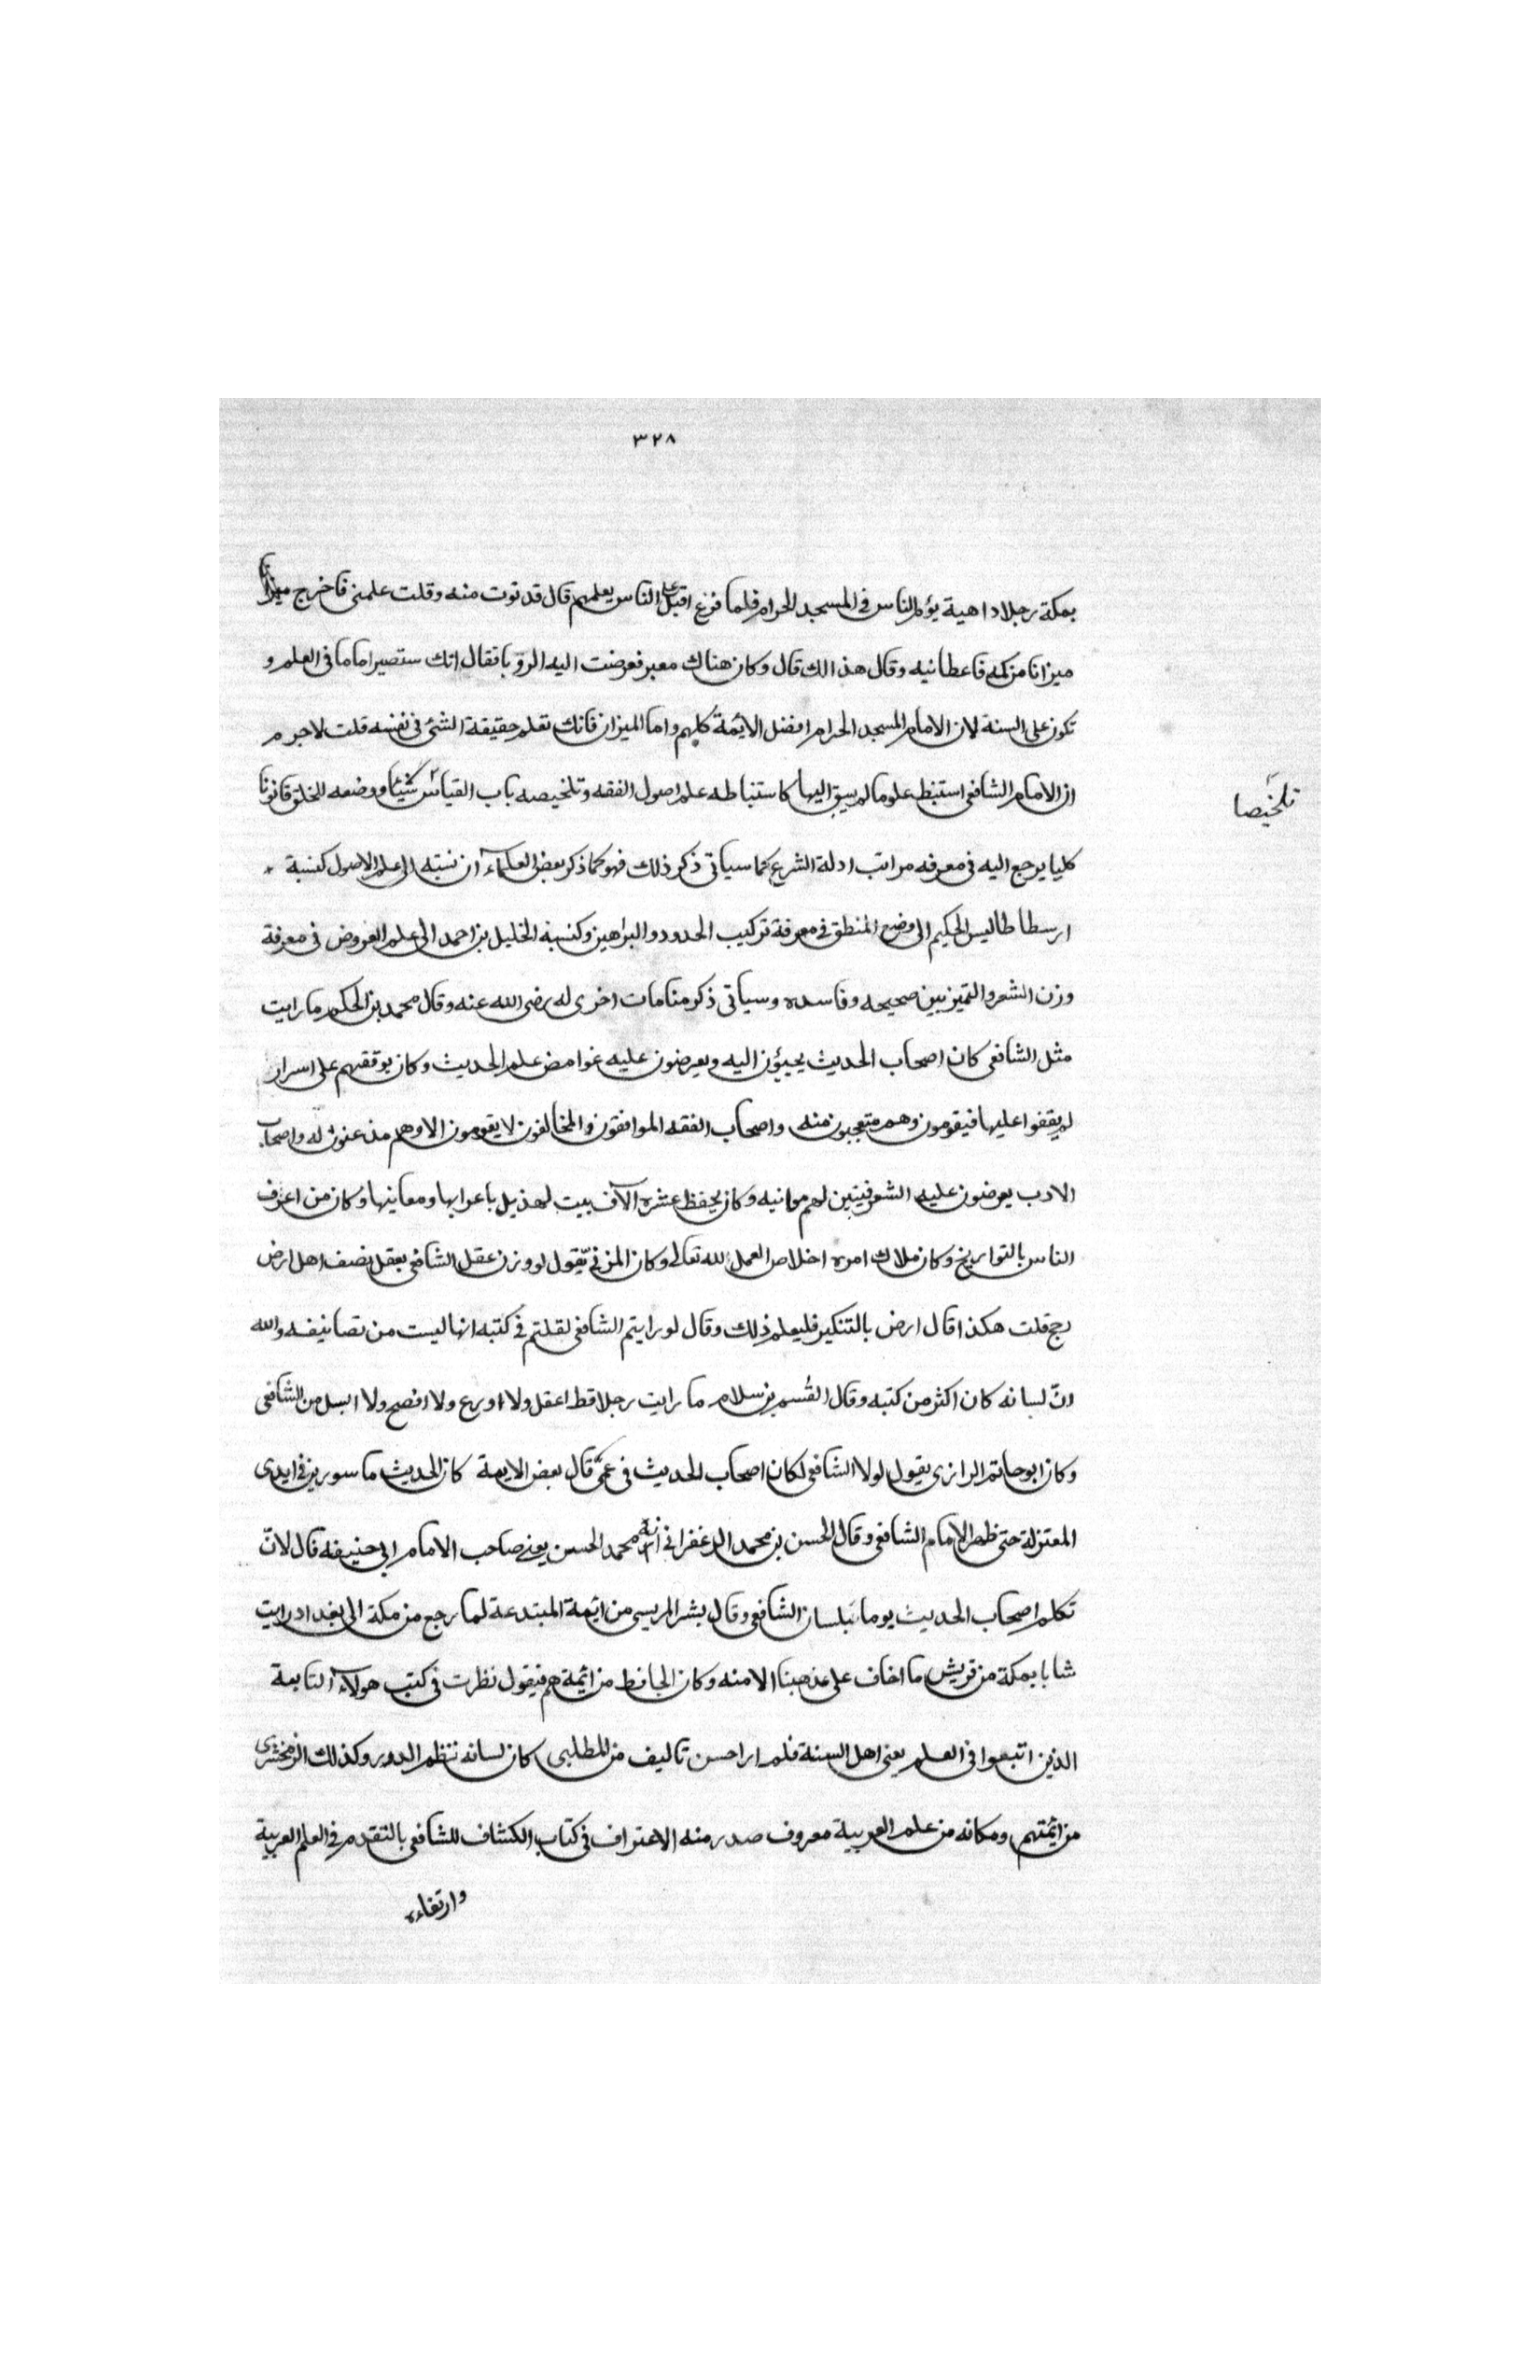 ٣٢٨
بمكة رجلا ذا هيبة يؤم الناس في المسجد الحرام فلما فرغ اقبل على الناس يعلمهم قال فدنوت منه وقلت علمني فاخرج ميزانا
ميزانا من كمه فاعطانيه وقال هذا لك قال وكان هناك معبر فعرضت اليه الرؤيا فقال انك ستصير اماما في العلم و
تكون على السنة لان الامام المسجد الحرام افضل الائمة كلهم واما الميزان فانك تعلم حقيقة الشئ في نفسه قلت لاجرم
ان الامام الشافعي استنبط علوما لم يسبق اليها كاستنباطه علم اصول الفقه وتلخيصه باب القياس شيئا ووضعه للخلق قانونا
تلخيصا
كليا يرجع اليه في معرفه مراتب ادلة الشرع كما سياتي ذكر ذلك فهو كما ذكر بعض العلماء ان نسبته الى علم الاصول كنسبة
ارسطاطاليس الحكيم الى وضع المنطق في معرفة تركيب الحدود والبراهين وكنسبة الخليل بن احمد الى علم العروض في معرفة
وزن الشعر والتميز بين صحيحه وفاسده وسياتي ذكر منامات اخرى له رضى الله عنه وقال محمد بن الحكم ما رايت
مثل الشافعي كان اصحاب الحديث يجيؤن اليه ويعرضون عليه غوامض علم الحديث وكان يوقفهم على اسرار
لم يقفوا عليها فيقومون وهم متعجبون منه واصحاب الفقه الموافقون والمخالفون لا يقومون الا وهم مذعنون له واصحاب
الادب يعرضون عليه الشعر فيتبين لهم معانيه وكان يحفظ عشرة الآف بيت لهذيل باعرابها ومعانيها وكان من اعرف
الناس بالتواريخ وكان ملاك امره اخلاص العمل لله تعالى وكان المزني يقول لو وزن عقل الشافعي بعقل نصف اهل ارض
رجح قلت هكذا قال ارض بالتنكير فليعلم ذلك وقال لو رايتم الشافعي لقلتم في كتبه انها ليست من تصانيفه والله
انّ لسانه كان اكثر من كتبه وقال القسم بن سلام ما رايت رجلا قط اعقل ولا اورع ولا افصح ولا انبل من الشافعي
وكان ابو حاتم الرازى يقول لولا الشافعي لكان اصحاب الحديث في عمى قال بعض الايمة كان الحديث ماسورين في ايدى
المعتزلة حتى ظهر الامام الشافعي وقال الحسن بن محمد الزعفراني انه محمد الحسن يعني صاحب الامام ابي حنيفه قال لانّ
تكلم اصحاب الحديث يوما فبلسان الشافعي وقال بشر المريسي من ائمة المبتدعة لما رجع من مكة الى بغداد رايت
شابا بمكة من قريش ما اخاف على مذهبنا الا منه وكان الجاحظ من ائمة هم فيقول نظرت في كتب هولآء التابعة
الذين اتبعوا في العلم يعني اهل السنة فلم ار احسن تاليف من المطلبي كان لسانه تنظم الدرر وكذلك الزمخشرى
من ائمتهم ومكانه من علم العربية معروف صدر منه الاعتراف في كتاب الكشاف للشافعي بالتقدم في العلم العربية
وارتفاعه